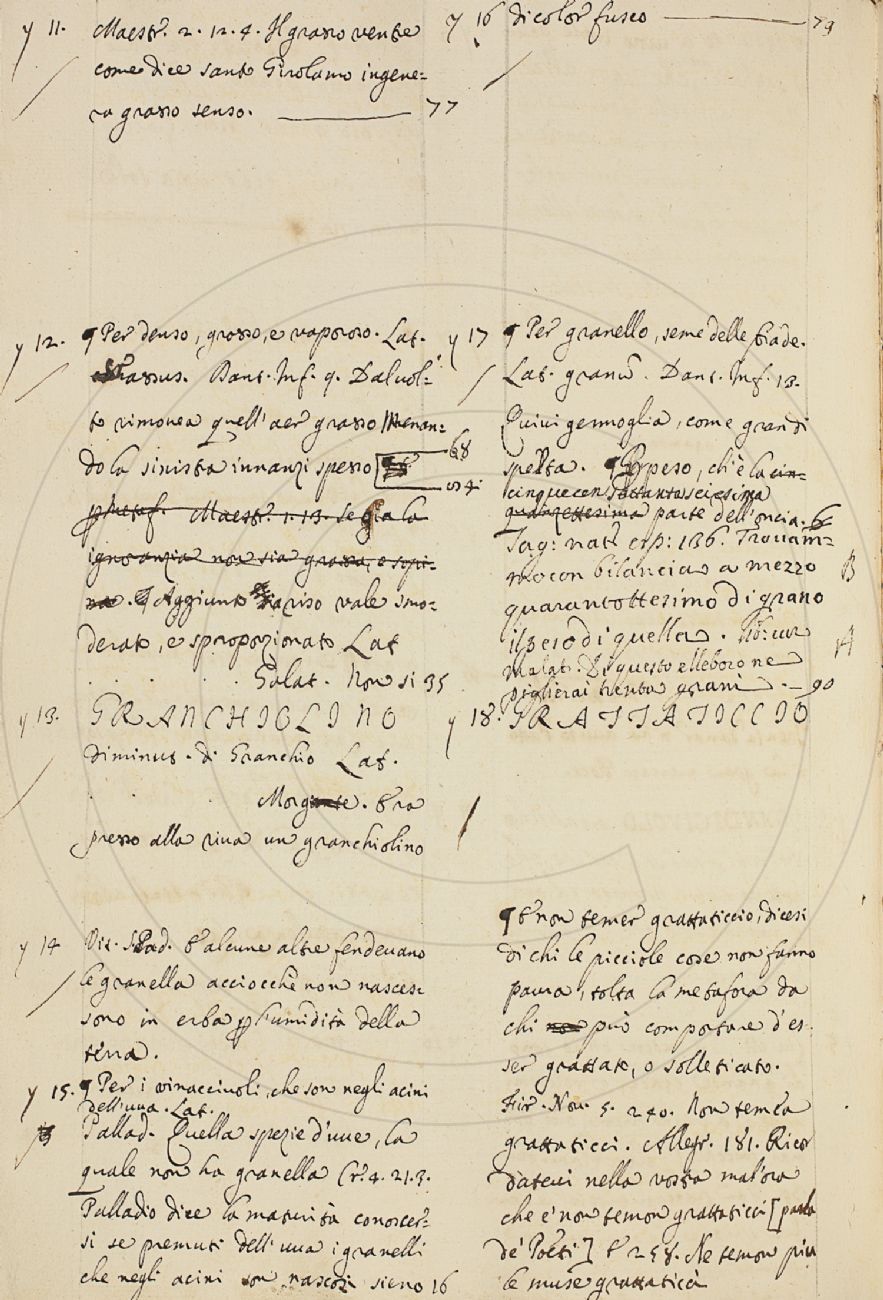 y 11. Maestr. 2. 12. 4. Il grasso ventre
come dice santo Girolamo ingene=
ra grasso senso. 77
y 12. ¶ Per denso, grosso, e vaporoso. Lat.
crassus. Dant. Inf. 9. Dal vol=
to rimovea quell'aer grasso / Menan=
do la sinistra innanzi spesso 68
54
Metaf. Maestr. 1. 13. Se gia la
ignoranzia non sia grassa, e supi=
na. ¶ Aggiunto a riso vale smo=
derato, e sproporzionato Lat
Galat. Non si 35
y 13. GRANCHIOLINO
Diminut. di Granchio Lat.
Morg. Era
presso alla riva un granchiolino
y 14 Vit. S. Pad. E alcune altre fendevano
le granella acciocchè non nasces=
sono in erba p l'umidità della
terra.
y 15. ¶ Per i vinacciuoli, che son negli acini
dell'uva. Lat.
Pallad. Quella spezie d'uve, la
quale non ha granella Cr. 4. 21. 3.
Palladio dice la maturità conoscer=
si se premuti dell'uva i granelli
che negli acini son nascosi sieno 16
y 16 di color fusco 79
y 17 ¶ Per granello, seme delle biade.
Lat. granum. Dant. Inf. 13.
Quivi germoglia, come gran di
spelta. ¶ Per peso, ch'è la cin=
cinquecensettantaseiesima
parte dell'oncia.
Sag: nat. esp: 136. Trovam=
mo con bilancia a mezzo B
quarantottesimo di grano
il peso di quella. A
malat. Di questo elleboro ne
piglierai trenta grani. 90
y 18. GRATTATICCIO
¶ E non temer grattaticcio, dicesi
di chi le picciole cose non fanno
paura, tolta la metafora da
chi può comportare d'es=
ser grattato, o solleticato.
Fir. Nov. 5. 240. Non temea
grattaticci. Allegr. 181. Ricor
datevi nella vostra malora
che e' non temon grattaticci [parla
de' Poeti] E 258. Ne temon più
le muse grattaticci